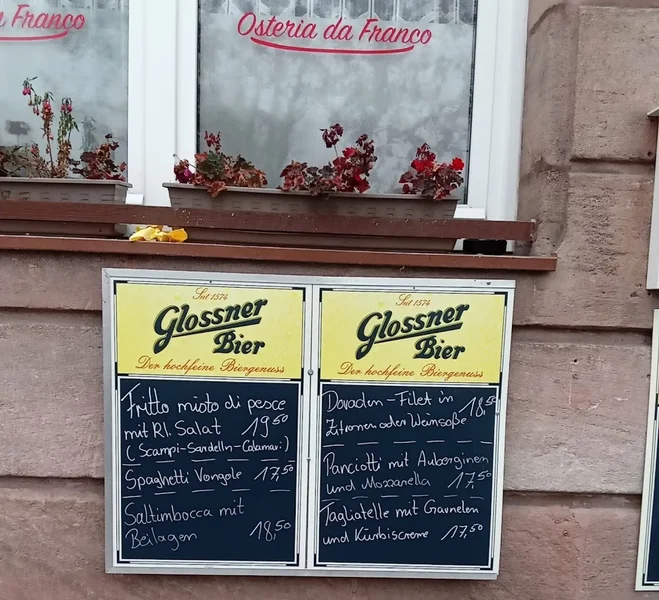 a Franco
Osteria da Franco
Seit 1574
Glossner
Bier
Der hochfeine Biergenuss
Fritto misto di pesce
mit Kl. Salat 19,50
(Scampi-Sardelln-Calamari)
Spaghetti Vongole 17,50
Saltimbocca mit
Beilagen 18,50
Seit 1574
Glossner
Bier
Der hochfeine Biergenuss
Doraden-Filet in 18,50
Zitronen oder Weinsoße
Panciotti mit Auberginen
und Mozzarella 17,50
Tagliatelle mit Garnelen
und Kürbiscreme 17,50